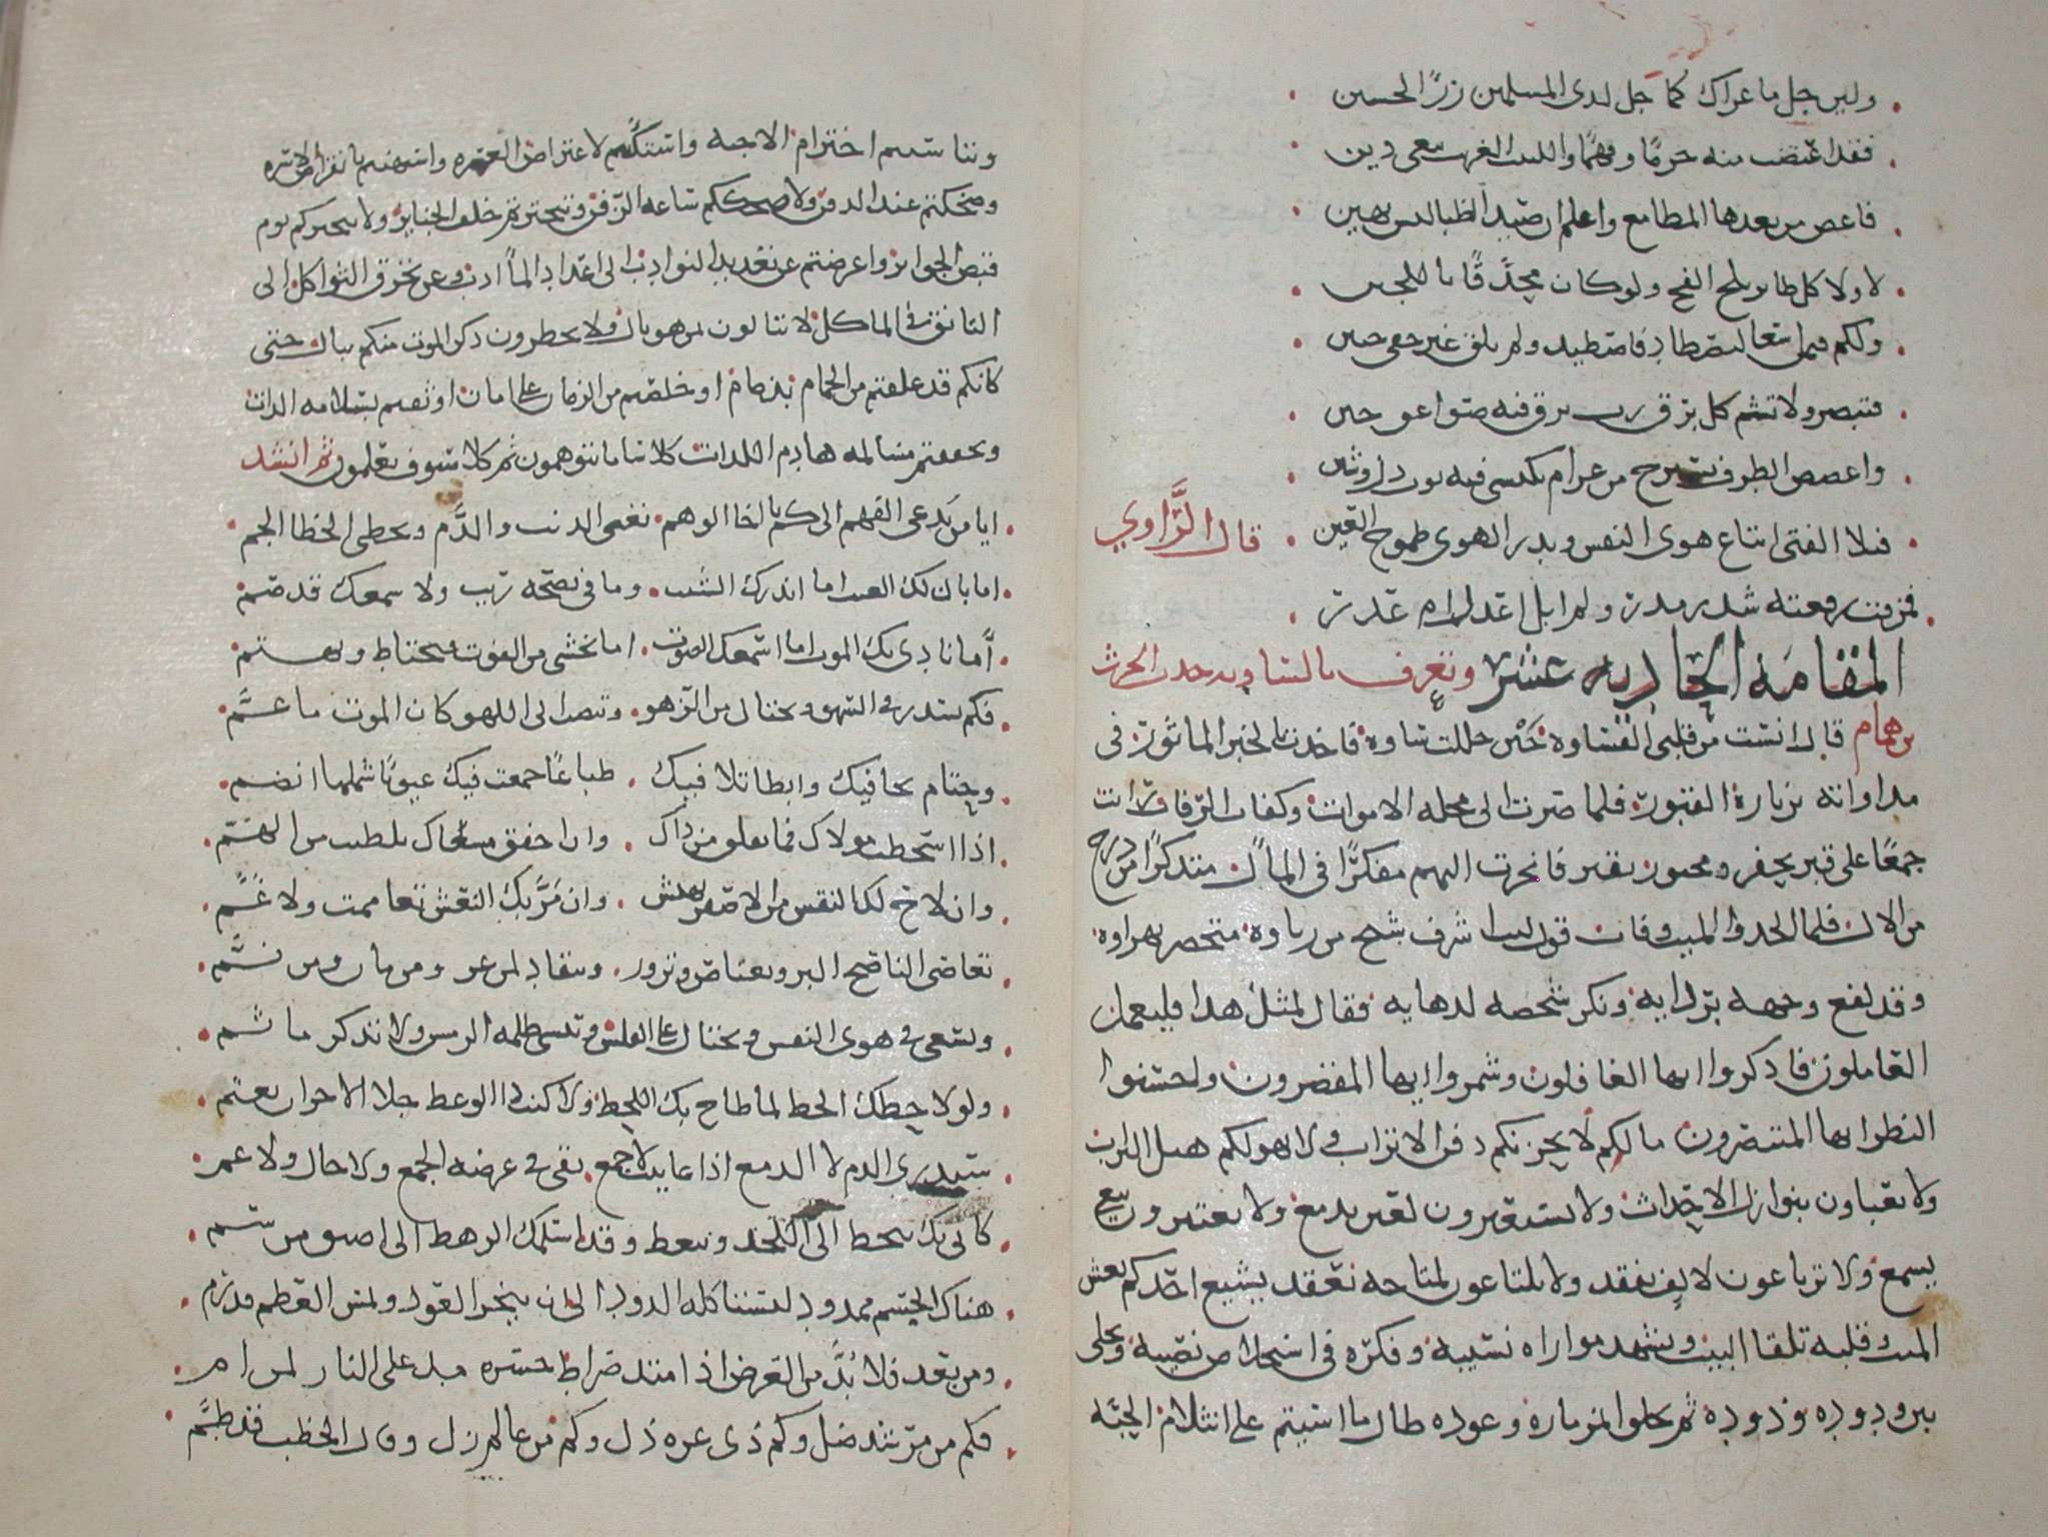 ولين جل ما عراك كما جل لدى المسلمين رزء الحسين
فقد اعتضت منه حزما وفهما واللبيب الغريب يبغي دين
فاعص من بعدها المطامع واعلم ان صيد الظبا ليس بهين
لا ولا كل طاير يلج الفخ ولو كان محدقا باللجين
ولكم من سعى ليصطاد فاصطيد ولم يلق غير خفي حنين
فتبصر ولا تشم كل برق رب برق فيه صواعق حين
واغضض الطرف تسترح من غرام تكتسي فيه ثوب ذل وشين
فبلا الفتى اتباع هوى النفس وبذر الهوى طموح العين قال الراوي
فمزقت رقعته شذر مذر ولم ابل اعذل ام عذر
المقامة الحادية عشر وتعرف بالساوية حدث الحرث
بن همام قال انست من قلبي القساوة حين حللت ساوة فاخذت بالخبر الماثور في
مداواته بزيارة القبور فلما صرت الى محلة الاموات وكفات الرفات رايت
جمعا على قبر يحفر ومجنوز يقبر فانحزت اليهم مفكرا في المآل متذكرا من درج
من الال فلما الحدوا الميت وفات قول ليت اشرف شيخ من رباوة متخصر بهراوة
وقد لفع وجهه بردايه ونكر شخصه لدهايه فقال لمثل هذا فليعمل
العاملون فاذكروا ايها الغافلون وشمروا ايها المقصرون واحسنوا
النظر ايها المتبصرون ما لكم لا يحزنكم دفن الاتراب ولا يهولكم هيل التراب
ولا تعباون بنوازل الاحداث ولا تستعدون لنزول الاجداث ولا تستعبرون لعين تدمع ولا تعتبرون بنعي
يسمع ولا ترتاعون لالف يفقد ولا تلتاعون لمناحة تعقد يشيع احدكم نعش
الميت وقلبه تلقا البيت ويشهد مواراة نسيبه وفكره في استخلاص نصيبه ويخلى
بين ودوده ودوده ثم يخلو بمزماره وعوده طال ما اسيتم على انثلام الحبه
وتناسيتم اخترام الاحبه واستكنتم لاعتراض العسره واستهنتم بانقراض الاسره
وضحكتم عند الدفن ولا ضحككم ساعة الزفن وتبخترتم خلف الجنايز ولا تبختركم يوم
قبض الجوايز واعرضتم عن تعديد النوادب الى اعداد المآدب وعن تحرق الثواكل الى
التانق في الماكل لا تبالون بمن هو بال ولا تخطرون ذكر الموت منكم ببال حتى
كانكم قد علقتم من الحمام بذمام او خلصتم من الزمان على امان او وثقتم بسلامة الذات
وتحققتم مسالمة هادم اللذات كلا سا ما تتوهمون ثم كلا سوف تعلمون ثم انشد
ايا من يدعي الفهم الى كم يا اخا الوهم تعبي الذنب والذم وتخطي الخطا الجم
اما بان لك العيب اما انذرك الشيب وما في نصحه ريب ولا سمعك قد صم
اما نادى بك الموت اما اسمعك الصوت اما تخشى من الفوت فتحتاط وتهتم
فكم تسدر في السهو وتختال من الزهو وتنصب الى اللهو كان الموت ما عم
وحتام تجافيك وابطا تلافيك طباعا جمعت فيك عيوبا شملها انضم
اذا اسخطت مولاك فما تقلق من ذاك وان اخفق مسعاك تلظيت من الهم
وان لاح لك النقش من الاصفر تهتش وان مر بك النعش تغاممت ولا غم
تعاصي الناصح البر وتعتاص وتزور وتنقاد لمن غر ومن مان ومن نم
وتسعى في هوى النفس وتحتال على الفلس وتنسى ظلمة الرمس ولا تذكر ما ثم
ولو لاحظك الحظ لما طاح بك اللحظ ولا كنت اذا الوعظ جلا الاحزان تغتم
ستذري الدم لا الدمع اذا عاينت لا جمع يقي في عرصة الجمع ولا خال ولا عم
كاني بك تنحط الى اللحد وتنغط وقد اسلمك الرهط الى اضيق من سم
هناك الجسم ممدود ليستاكله الدود الى ان ينخر العود ويمسي العظم قد رم
ومن بعد فلا بد من العرض اذا امتد صراط جسره مد على النار لمن ام
فكم من مرشد ضل وكم ذي عزة ذل وكم من عالم زل وقال الخطب قد طم